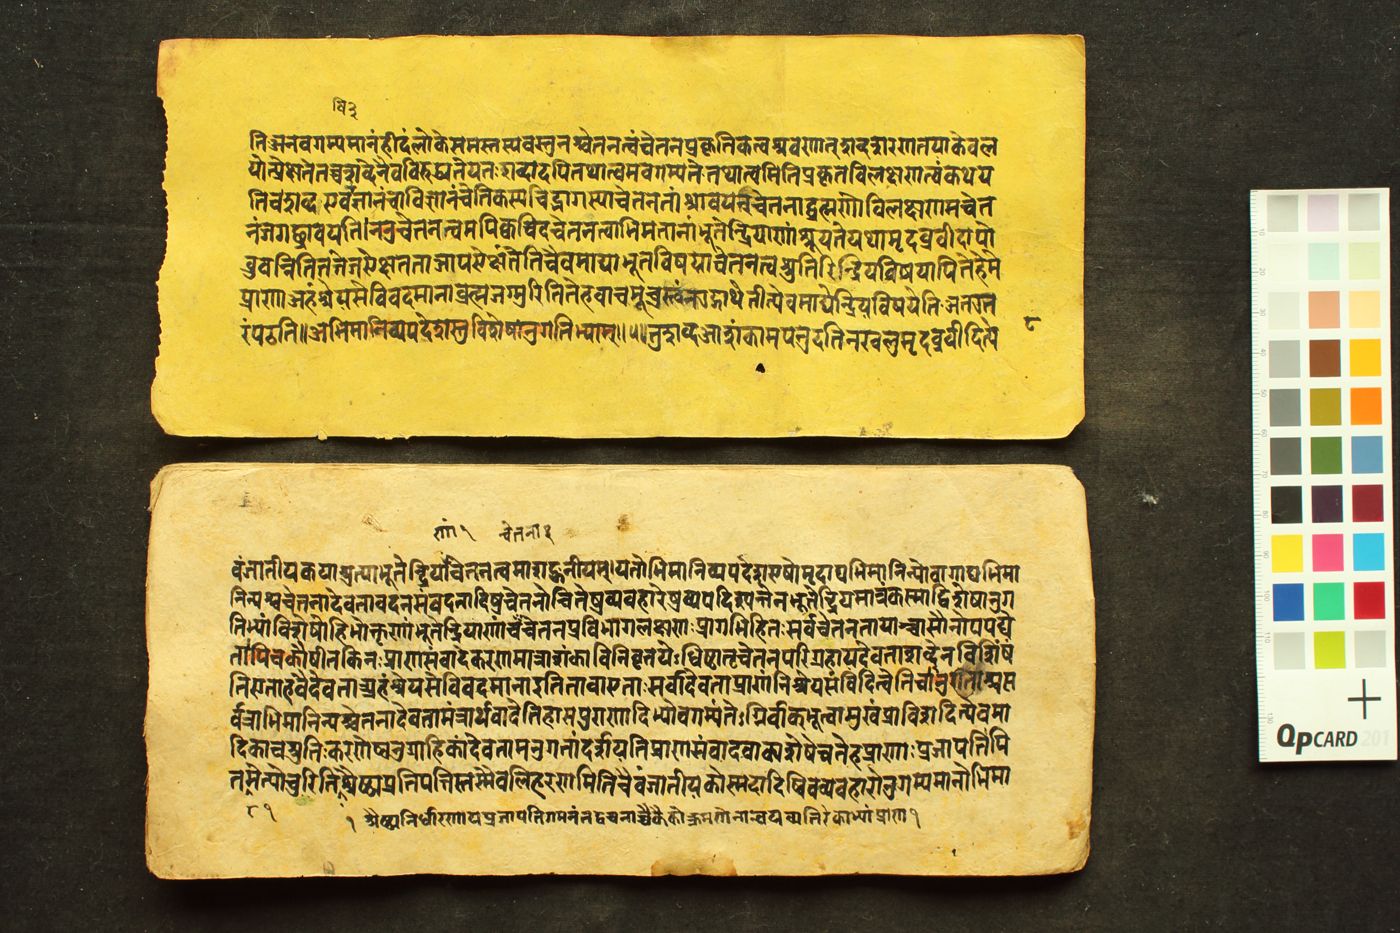 षि२
ति अनवगम्यमानं हीदं लोके समस्तस्य वस्तुनश्चेतनत्वं चेतनप्रकृतिकत्वश्रवणात् शब्दशरणतया केवल
योत्प्रेक्षेत तच्च शब्देनैव विरुद्ध्यते यतः शब्दादपि तथात्वमवगम्यते तथात्वमिति प्रकृतविलक्षणत्वं कथय
ति च शब्द एव विज्ञानं चाविज्ञानं चेति कस्यचिद्विभागस्याचेतनतां श्रावयंश्चेतनाद्ब्रह्मणो विलक्षणमचेत
नं जगच्छ्रावयति ननु चेतनत्वमपि क्वचिदचेतनत्वाभिमतानां भूतेन्द्रियाणां श्रूयते यथा मृदब्रवीदापो
ब्रुवन्निति तत्तेज ऐक्षत ता आप ऐक्षंतेति चैवमाद्या भूतविषया चेतनत्वश्रुतिः इन्द्रियविषयापि ते हेमे
प्राणा अहंश्रेयसे विवदमाना ब्रह्म जग्मुरिति ते ह वाचमूचुस्त्वं न उद्गायेतीत्येवमाद्येन्द्रियविषयेति अत उत्त
रं पठति॥ अभिमानिव्यपदेशस्तु विशेषानुगतिभ्याम्॥५॥ तुशब्द आशंकामपनुदति न खलु मृदब्रवीदित्ये
८
णां१ चेतना१
वंजातीयकया श्रुत्या भूतेन्द्रियचेतनत्वमाशङ्कनीयम् यतोभिमानिव्यपदेश एष मृदाद्यभिमानिन्यो वागाद्यभिमा
निन्यश्च चेतना देवता वदनसंवदनादिषु चेतनोचितेषु व्यवहारेषु व्यपदिश्यन्ते न भूतेन्द्रियमात्रं कस्माद्विशेषानुग
तिभ्यां विशेषो हि भोक्तृणां भूतेन्द्रियाणां च चेतनप्रविभागलक्षणः प्रागभिहितः सर्वचेतनतायां चासौ नोपपद्ये
तापि च कौषीतकिनः प्राणसंवादे करणमात्राशंकाविनिवृत्तयेऽधिष्ठातृचेतनपरिग्रहाय देवताशब्देन विशिंषं
ति एता ह वै देवता अहंश्रेयसे विवदमाना इति ता वा एताः सर्वा देवताः प्राणे निःश्रेयसं विदित्वेति चानुगताश्च स
र्वत्राभिमानिन्यश्चेतना देवता मंत्रार्थवादेतिहासपुराणादिभ्योवगम्यंतेऽग्निर्वाक् भूत्वा मुखं प्राविशदित्येवमा
दिका च श्रुतिः करणेष्वनुग्राहिकां देवतामनुगतां दर्शयति प्राणसंवादवाक्यशेषे च ते ह प्राणाः प्रजापतिं पि
तरमेत्योचुरिति श्रैष्ठ्यप्रतिपत्तिस्तस्मै बलिहरणमिति चैवंजातीयकोस्मदादिष्विव व्यवहारोनुगम्यमानोभिमा
८१
१ श्रेष्ठ्यनिर्धारणाय प्रजापतिगमनं तद्वचनाच्चैकैकोत्क्रमणेनान्वयव्यतिरेकाभ्यां प्राण१